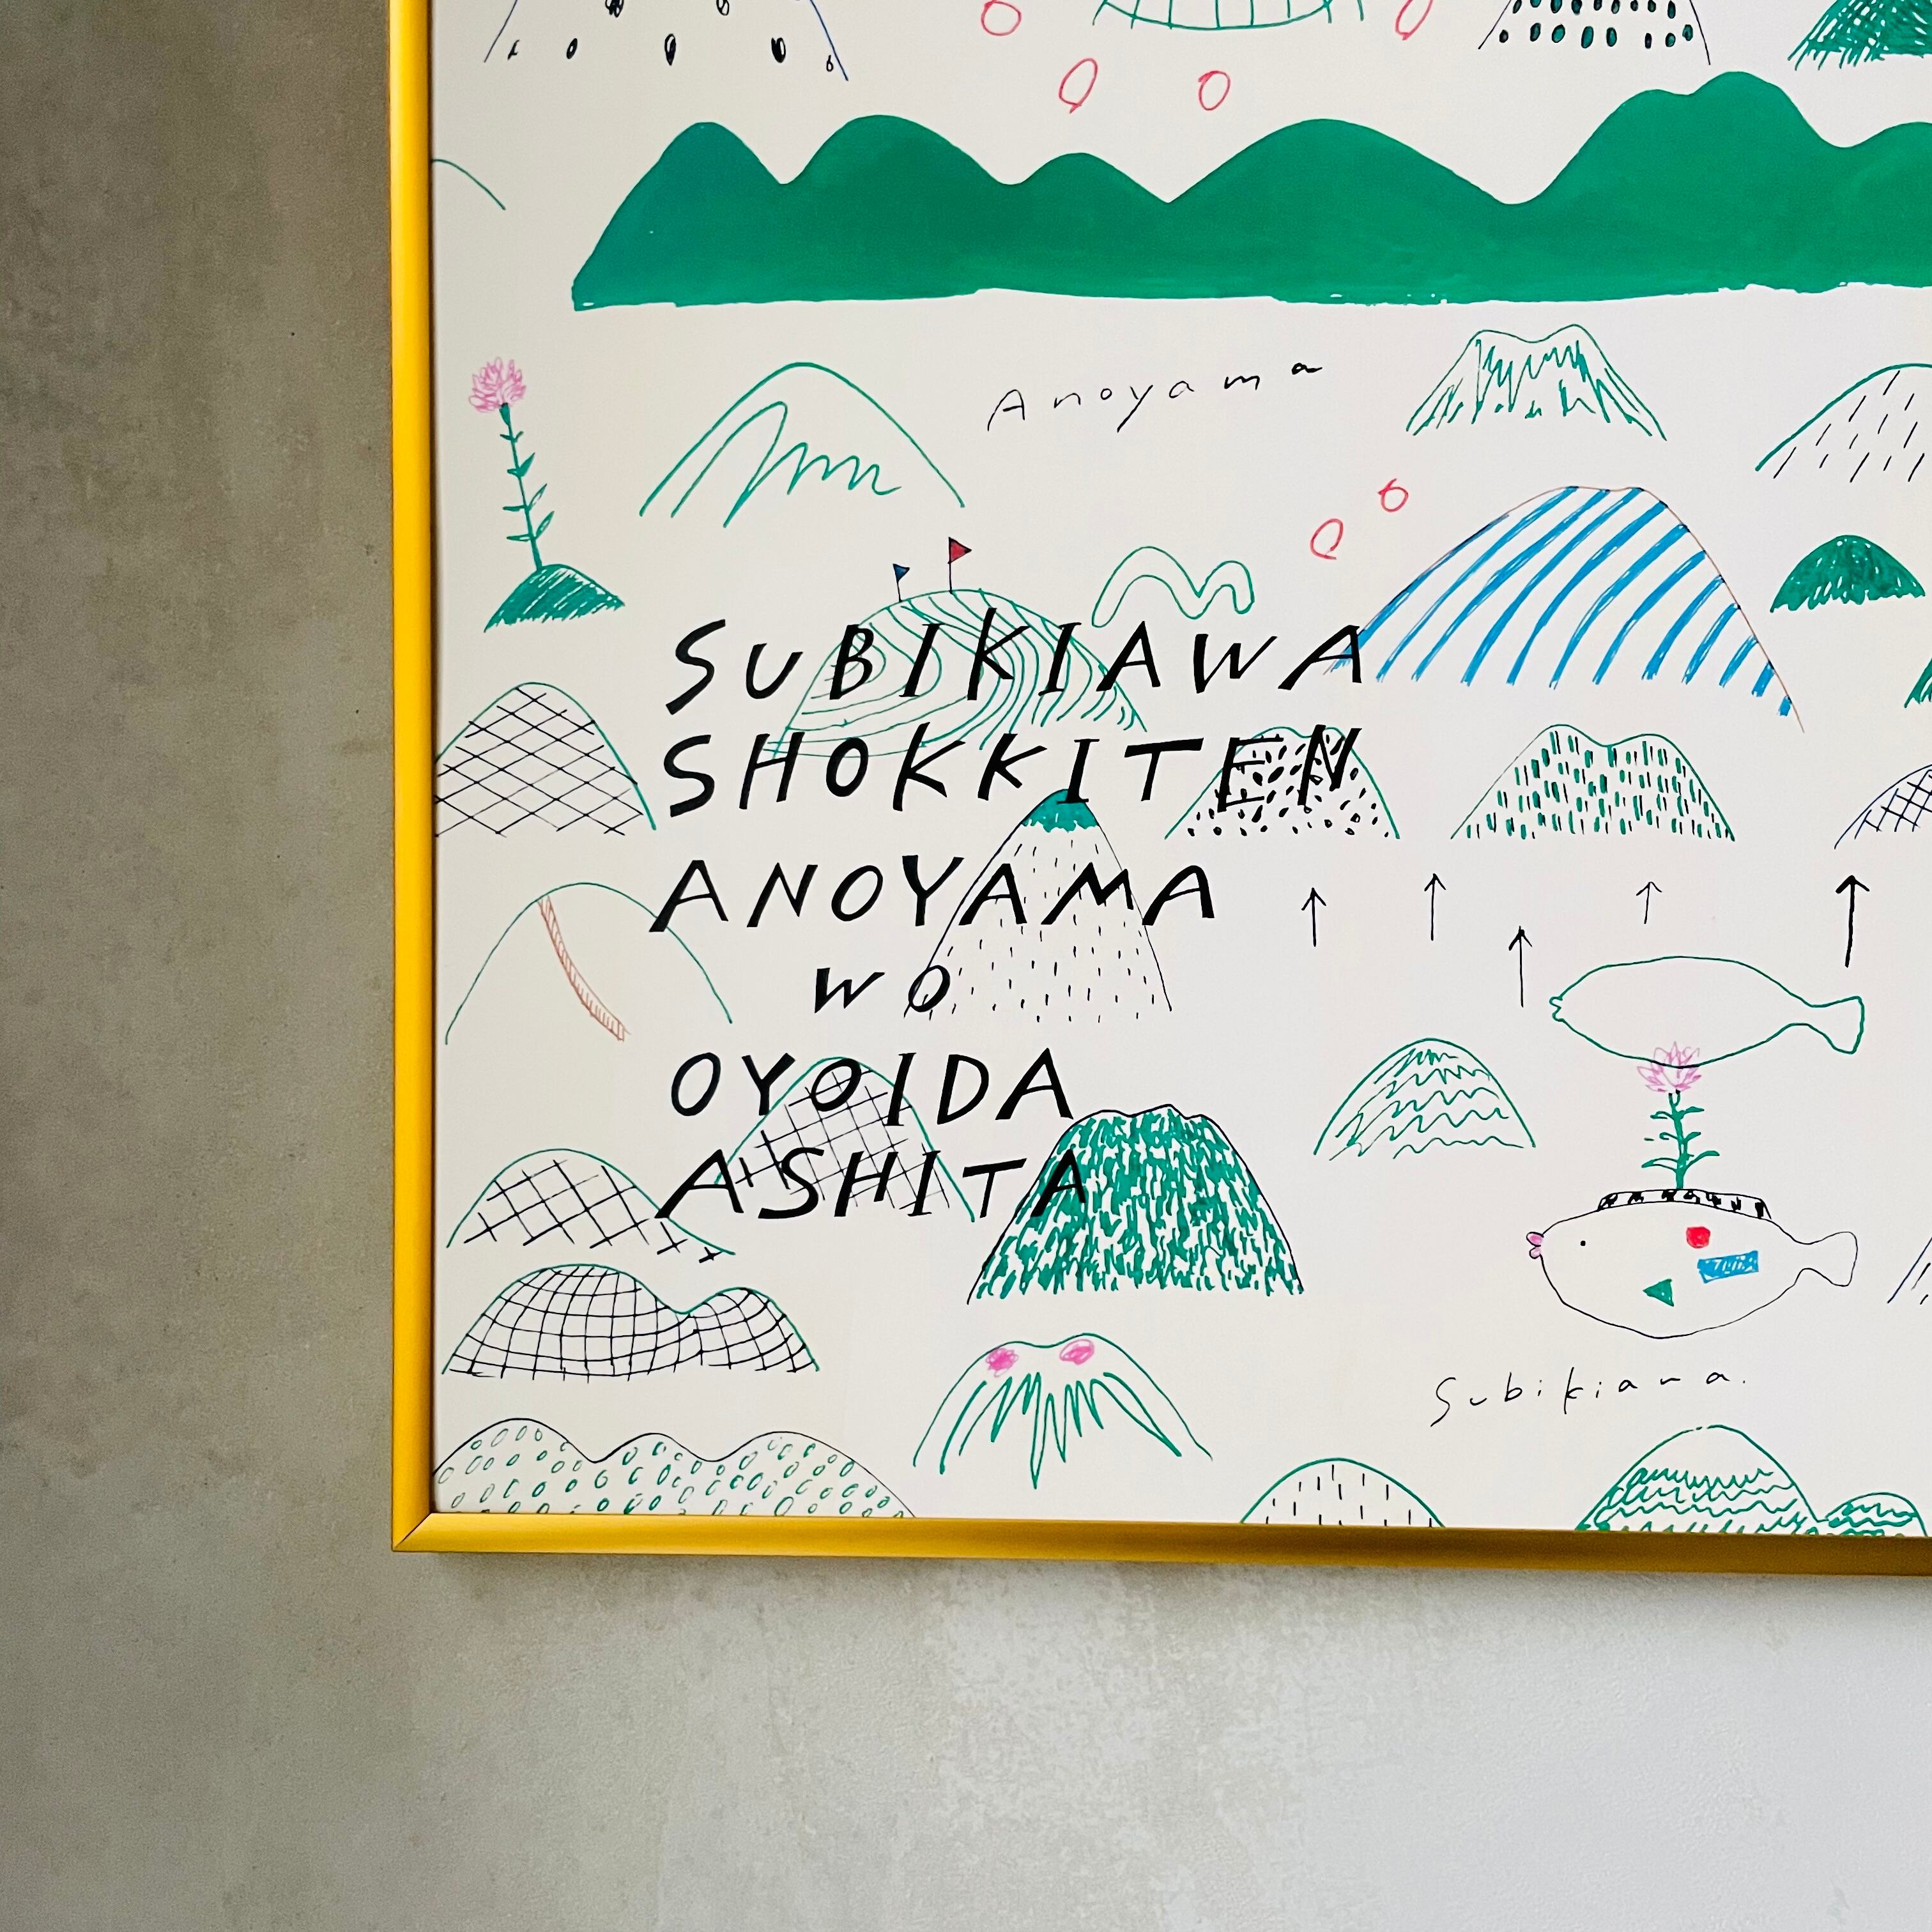 Anoyama
SUBIKIAWA
SHOKKITEN
ANOYAMA
WO
OYOIDA
ASHITA
Subikiawa.